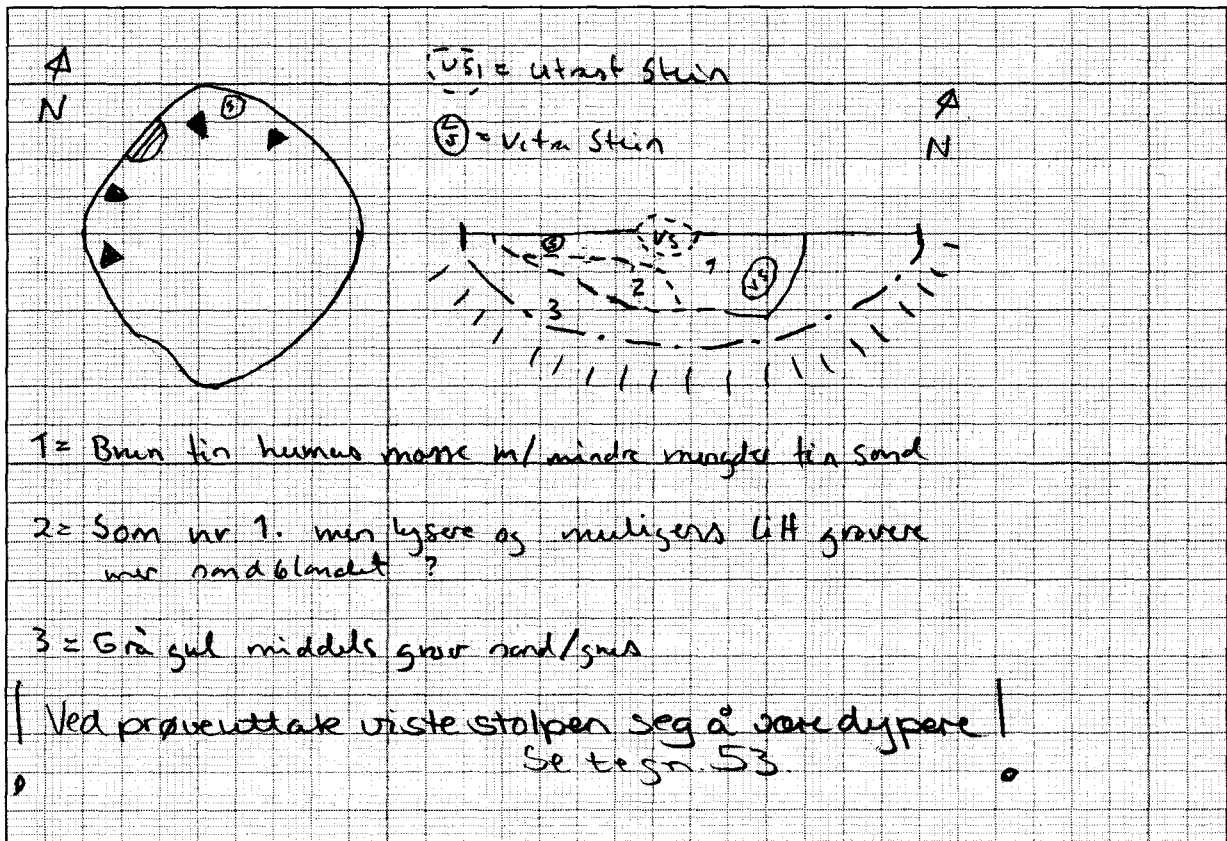 N
VS = Utrast Stein
N
VS = Vitra Stein
S
S
VS
1
VS
2
3
1 = Brun fin humus masse m/ mindre mengder fin sand
2 = Som nr 1. men lysere og muligens litt grovere
mer sandblandet ?
3 = Grå gul middels grov sand/grus
! Ved prøveuttak viste stolpen seg å være dypere !
Se tegn. 53.